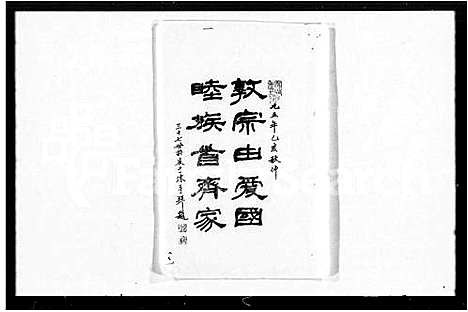 九五年乙亥秋仲
敦宗由爱國
睦族首齊家
三十七世孫